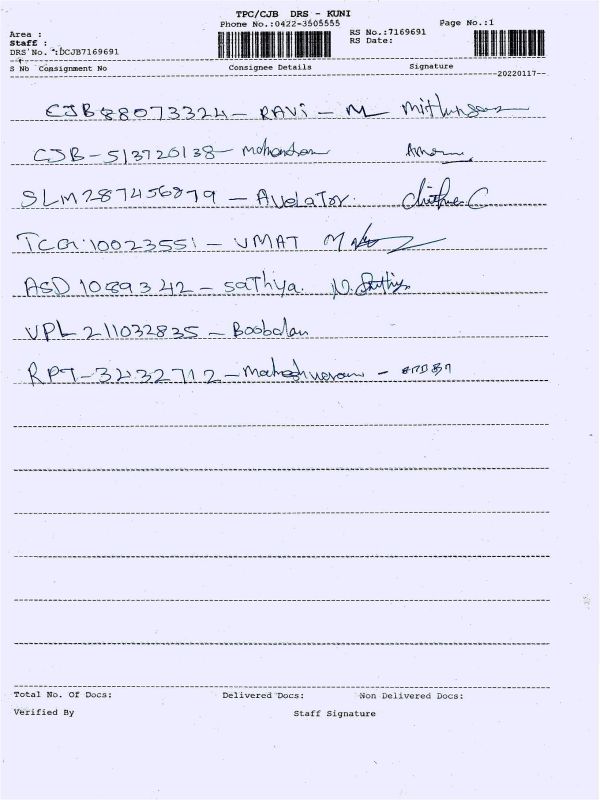 TPC/CJB DRS - KUNI
Phone No.:0422-3505555
Page No.:1
Area :
RS No.:7169691
Staff :
RS Date:
DRS No. :DCJB7169691
S No Consignment No Consignee Details Signature
--20220117--
CJB88073324 - RAVi - M
CJB - 513720138 - Mohandran
SLM287456879 - AvelaTor.
TCG:10023551 - UMAT
ASD 1089342 - saThiya. N. Sathiya
VPL 211032835 - Boobalan
RPT - 3232712 - Maheshwaran -
Total No. Of Docs: Delivered Docs: Non Delivered Docs:
Verified By Staff Signature